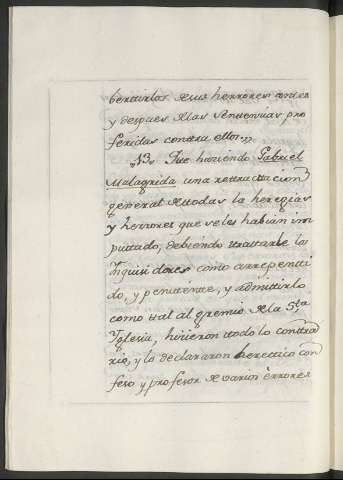 bertirlos de sus herrores antes
y despues de las Sentencias pro
feridas contra ellos.,,
,,13. Que haciendo Gabriel
Malagrida una retractacion
general de todas la heregias
y herrores que se les habian im
putado, debiendo tratarle los
Ynquisidores como arrepenti
do, y penitente, y admitirlo
como tal al gremio de la S.ta
Yglesia, hicieron todo lo contra
rio, y lo declararon heretico con
feso y profesor de varios errores